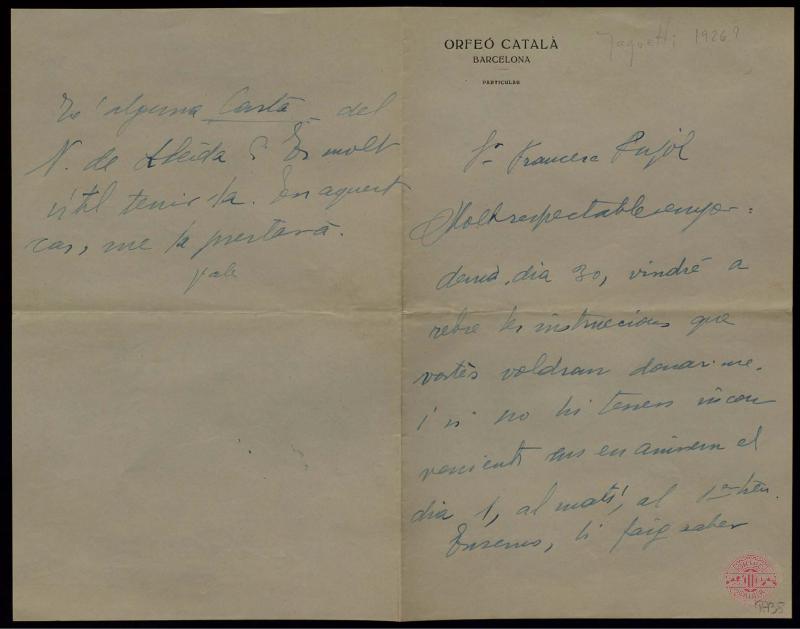 ORFEÓ CATALÀ
BARCELONA
PARTICULAR
1926?
Sr. Francesc Pujol
Molt respectable senyor:
demà, dia 30, vindré a
rebre les instruccions que
vostès voldran donar-me.
i si no hi tenen incon
venient ens en anirem el
dia 1, al matí, al 1er tren.
Ensems, li faig saber
Té alguna Carta del
N. de Lleida? Es molt
útil tenir-la. En aquest
cas, me la prestarà.
Vale